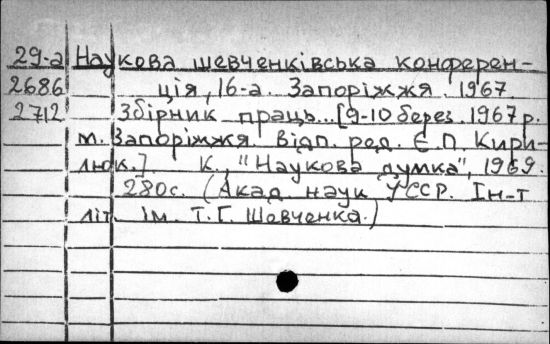 29-а Наукова шевченківська конферен-
2686 ція, 16-а. Запоріжжя. 1967
2712 Збірник праць... [9-10 берез. 1967 р.
м. Запоріжжя. Відп. ред. Є. П. Кири-
люк.]. К., "Наукова думка", 1969.
280 с. (Акад. наук УССР. Ін-т
літ. ім. Т. Г. Шевченка.)